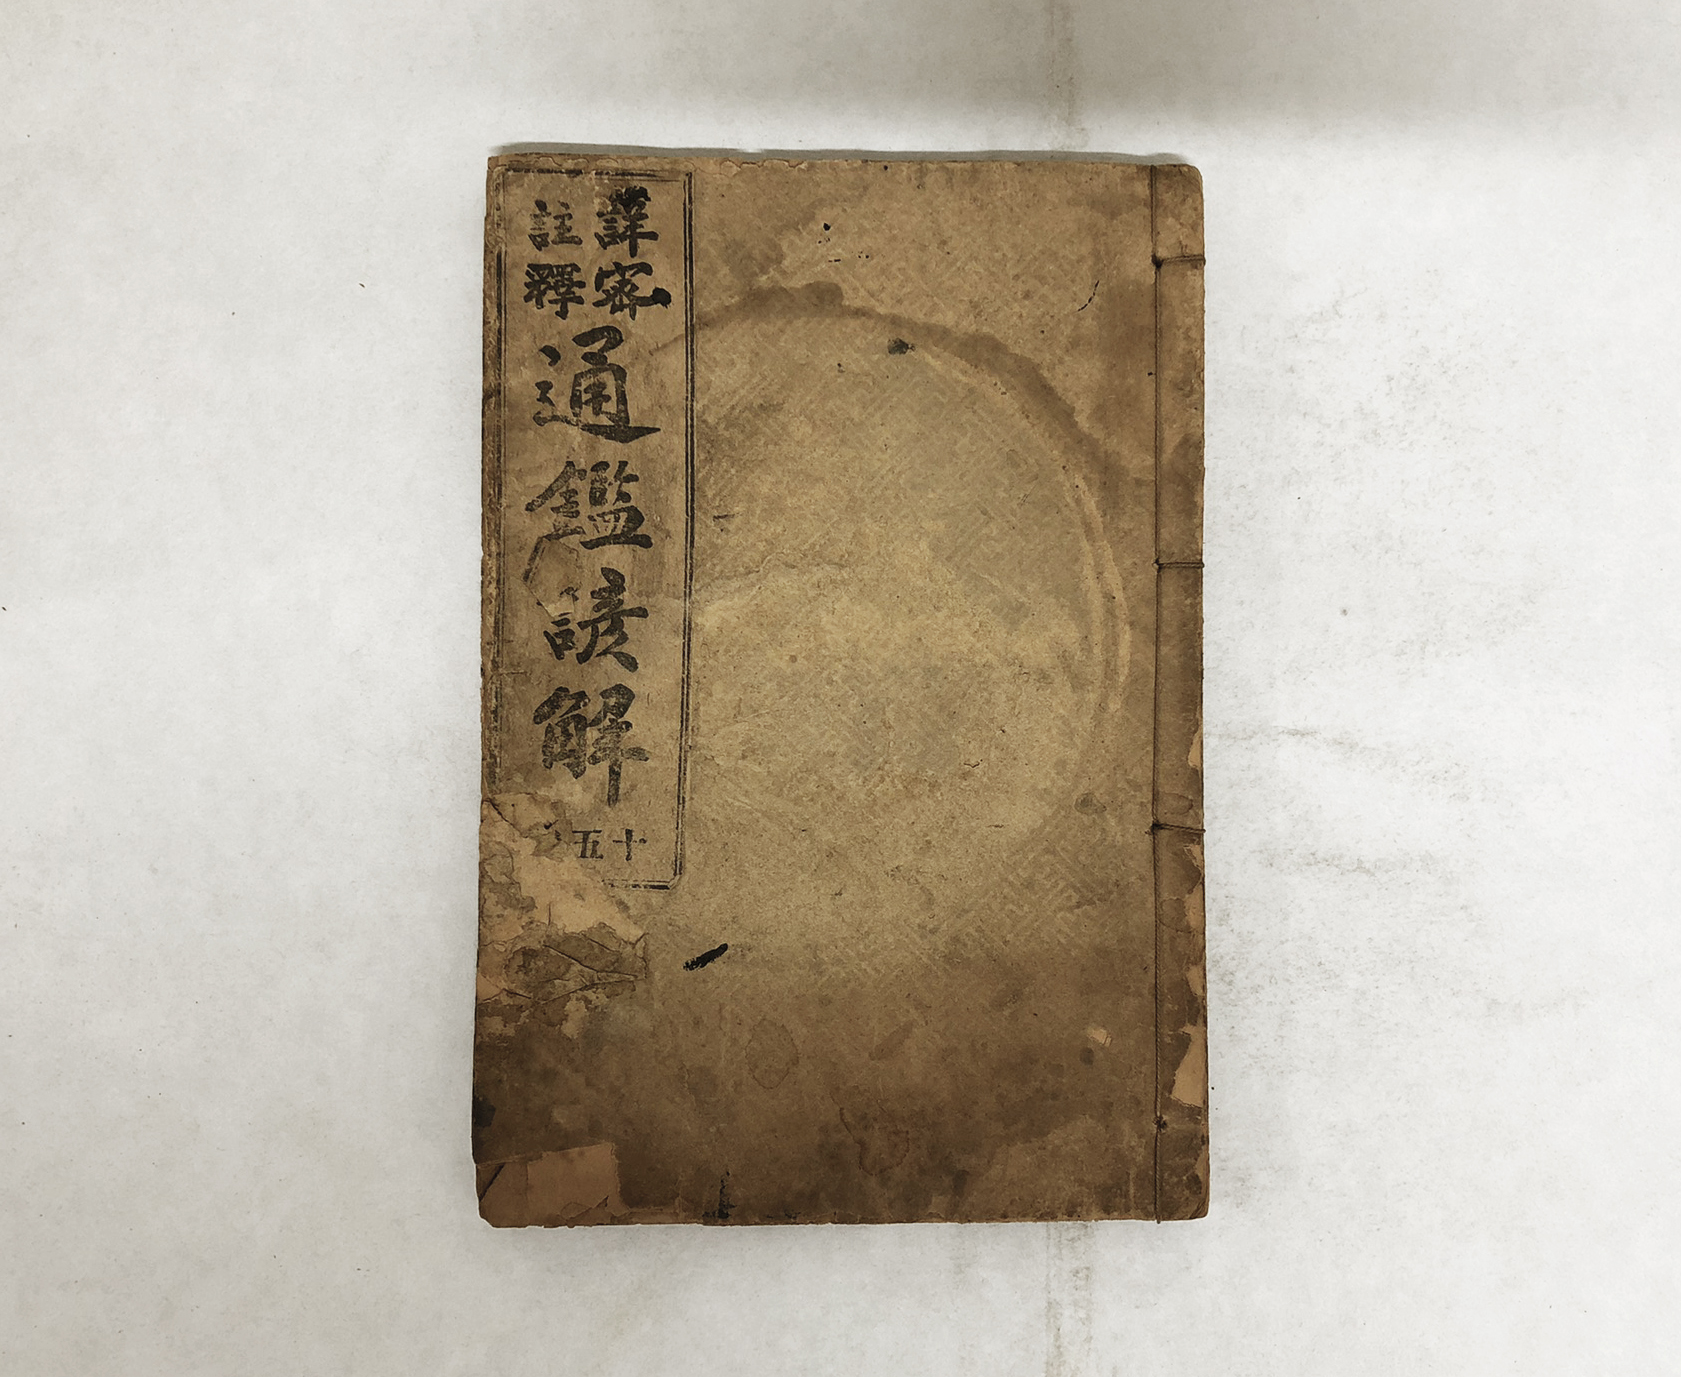 詳密
註釋
通鑑諺解
十五